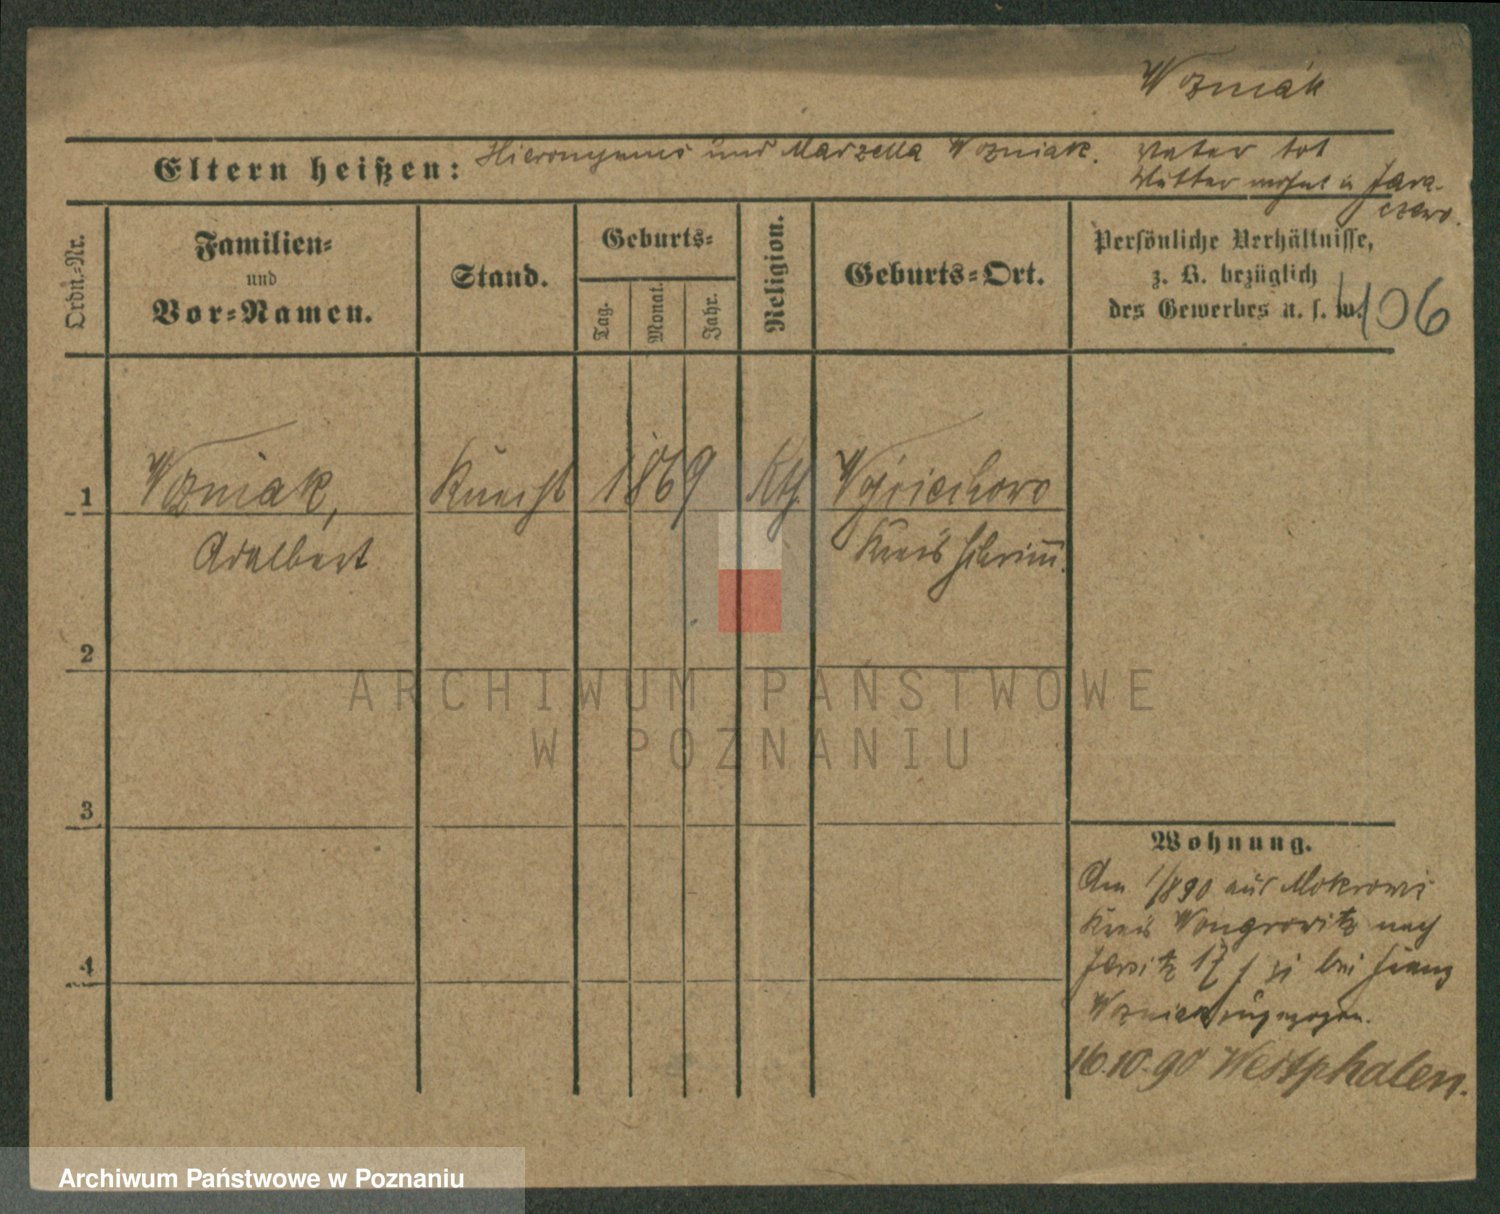 Wozniak
Eltern heißen: Hieronymus und Marzella Wozniak. Vater tot
Mutter wohnt in Jara-
czewo.
Ordn.-Nr.
Familien-
und
Vor-Namen.
Stand.
Geburts-
Tag.
Monat.
Jahr.
Religion.
Geburts-Ort.
Persönliche Verhältnisse,
z. B. bezüglich
des Gewerbes u. s. w.
406
1 Wozniak, Knecht 1869 Kth. Wojciechowo
Adalbert Kreis Schrimm.
2
3
4
Wohnung.
Am 1/8 90 aus Mokronos
Kreis Wongrowitz nach
Jersitz 17 bei Franz
Wozniak zugezogen.
16.10.90 Westphalen.
ARCHIWUM PAŃSTWOWE
W POZNANIU
Archiwum Państwowe w Poznaniu